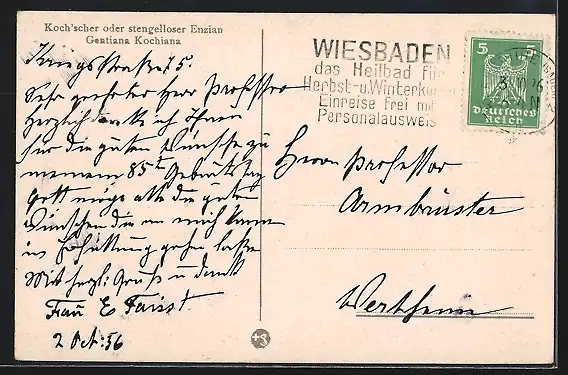 Koch'scher oder stengelloser Enzian
Gentiana Kochiana
Kriegsstraße 75.
Sehr geehrter Herr Professor
Herzlich danke ich Ihnen
für die guten Wünsche zu
meinem 85ten Geburtstag
Gott möge alle die guten
Wünschen die an mich kamen
in Erfüllung gehen lassen
Mit herzl. Gruß u dank
Frau E Faisst
2 Oct: 26
WIESBADEN
das Heilbad Für
Herbst-u.Winterkur
Einreise frei mit
Personalausweis
5 5
Deutsches
Reich
Herrn Professor
Armbruster
Wertheim